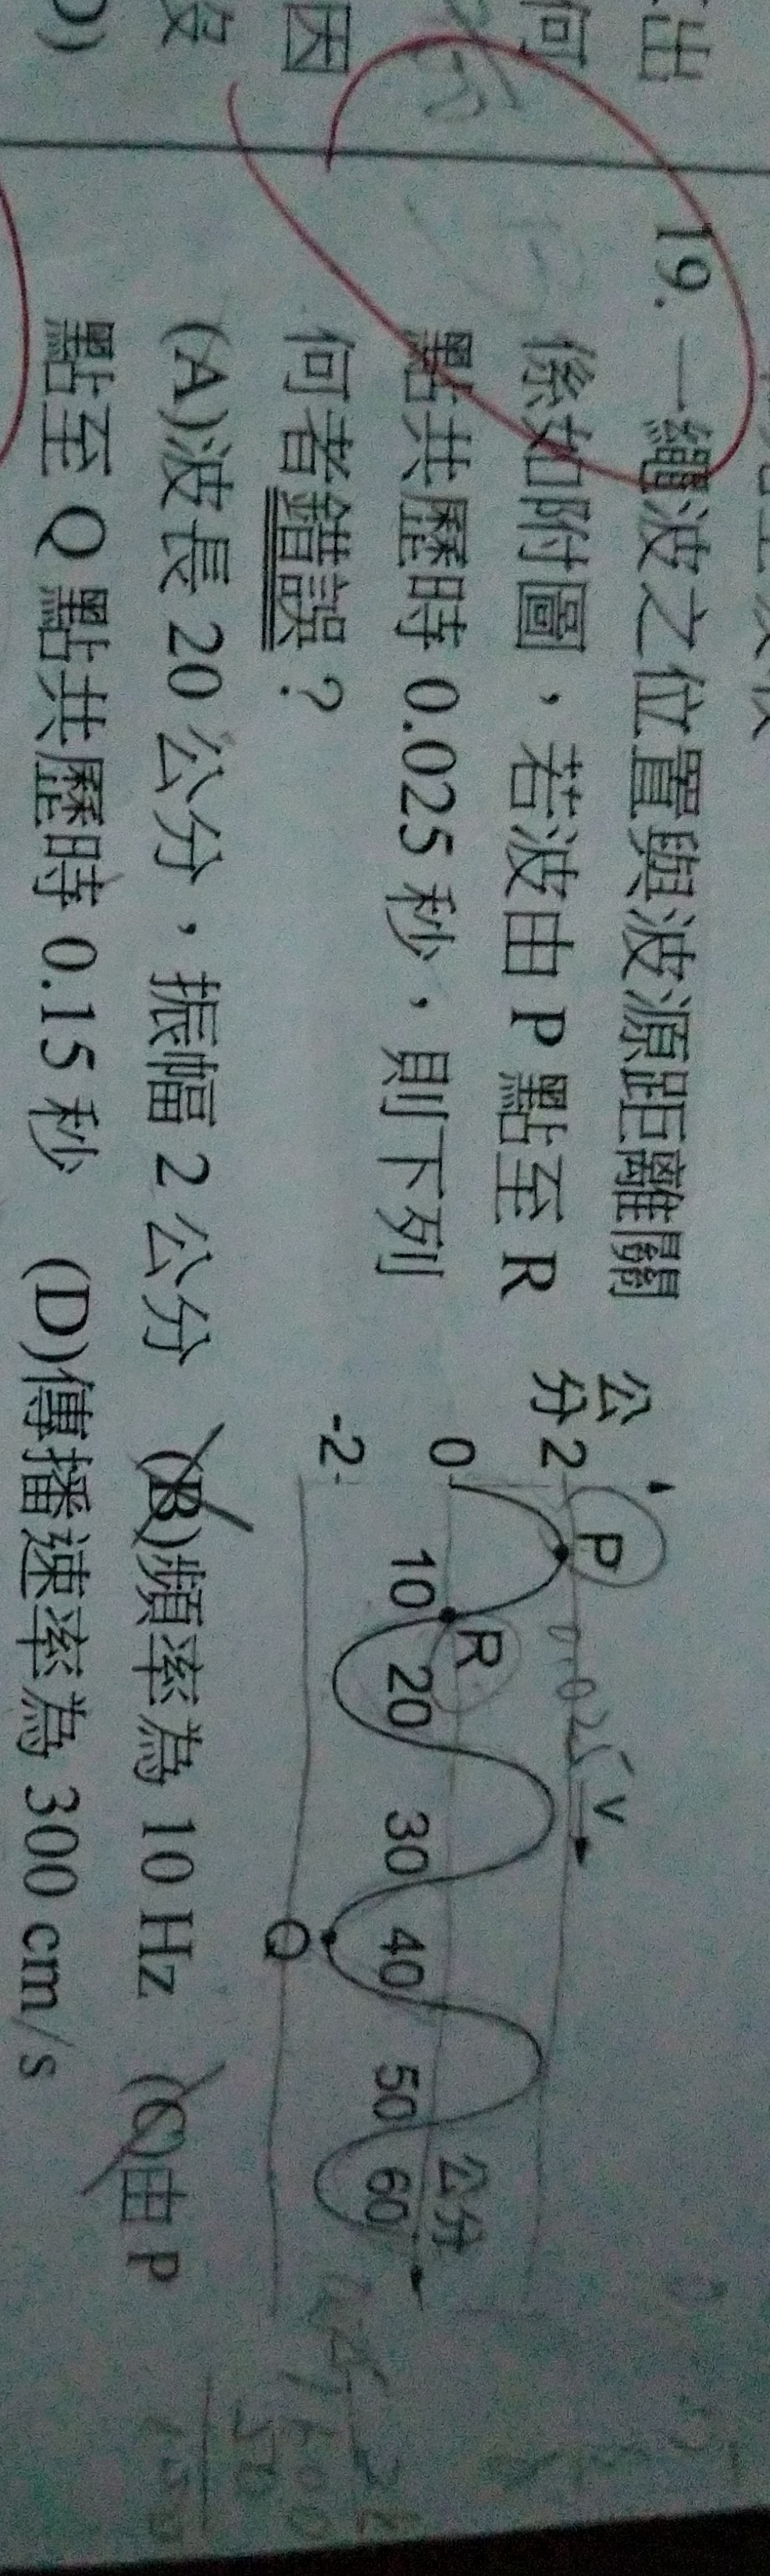 出
何
因
度
D)
19. 一繩波之位置與波源距離關
係如附圖，若波由 P 點至 R
點共歷時 0.025 秒，則下列
何者錯誤？
(A)波長 20 公分，振幅 2 公分 (B)頻率為 10 Hz (C)由 P
點至 Q 點共歷時 0.15 秒 (D)傳播速率為 300 cm/s
公
分
2
0
-2
P
R
Q
v
0.025
10 20 30 40 50 60
公分